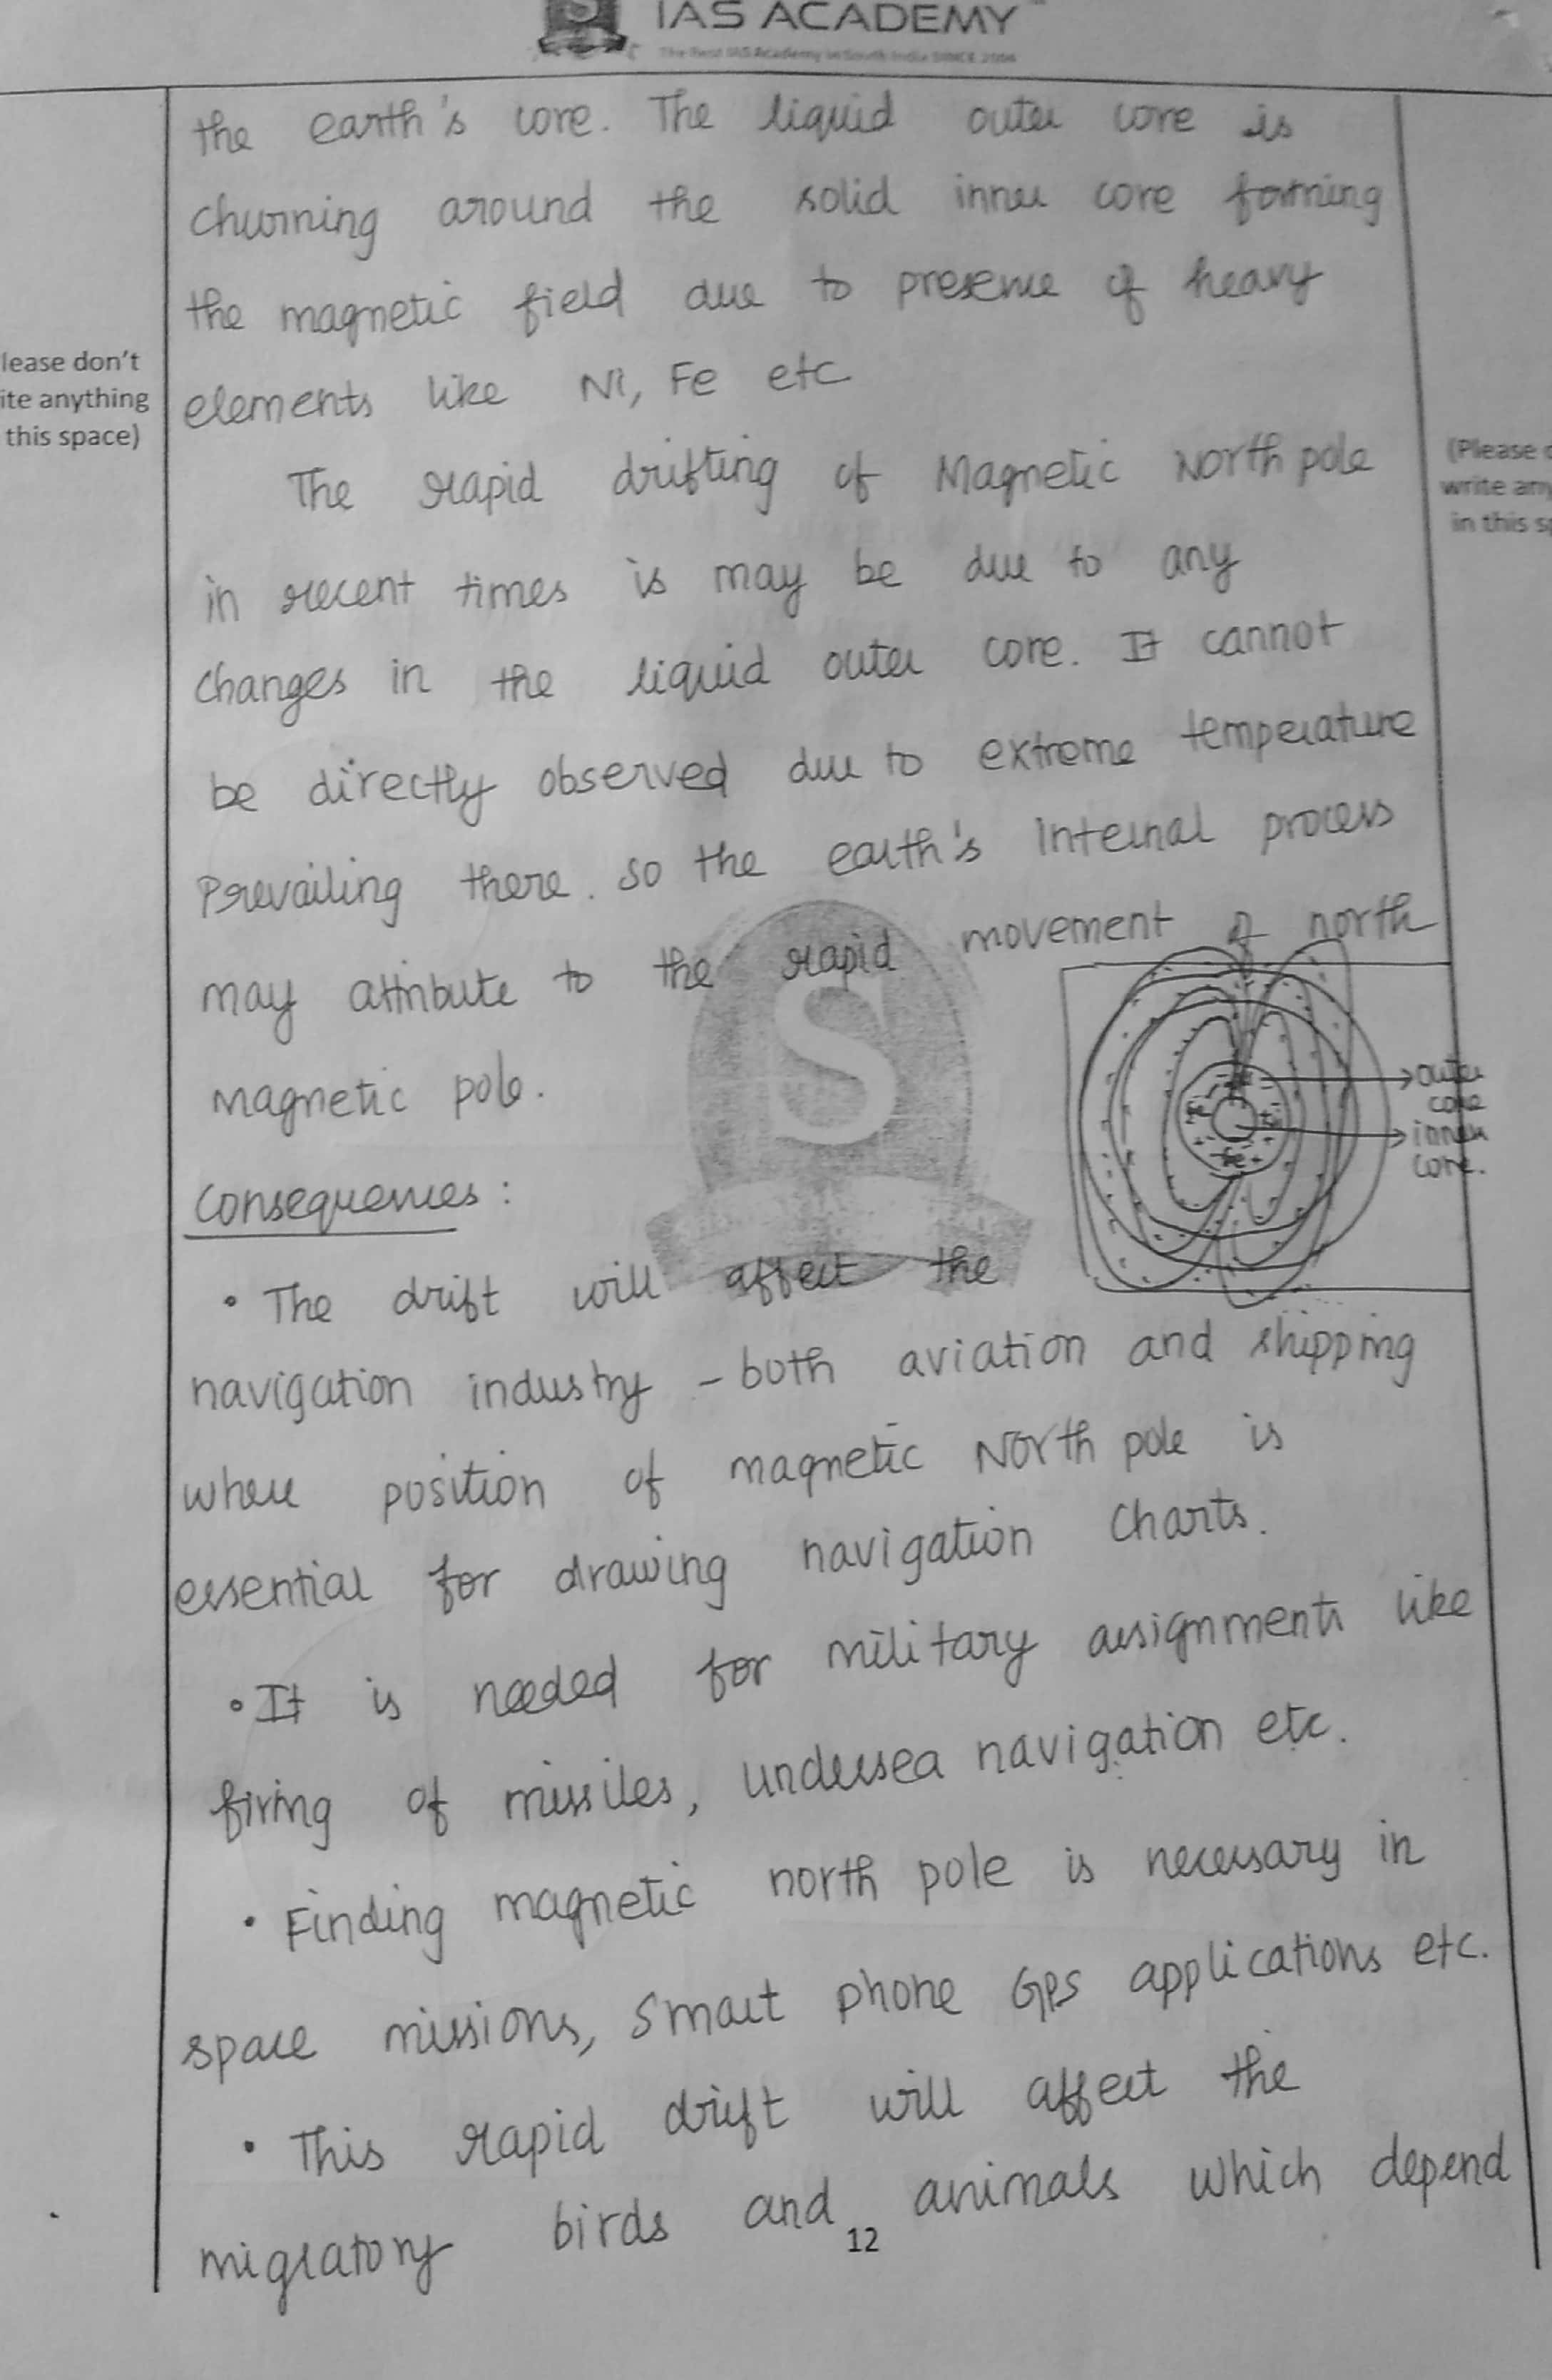 IAS ACADEMY
The Best IAS Academy in South India SINCE 2004
the earth's core. The liquid outer core is
churning around the solid inner core forming
the magnetic field due to presence of heavy
elements like Ni, Fe etc
lease don't
ite anything
this space)
The rapid drifting of Magnetic North pole
(Please d
write any
in this sp
in recent times is may be due to any
changes in the liquid outer core. It cannot
be directly observed due to extreme temperature
prevailing there. so the earth's internal process
may attribute to the rapid movement of north
magnetic pole.
S
outer
core
inner
core.
Fe
Consequences :
• The drift will affect the
navigation industry - both aviation and shipping
where position of magnetic North pole is
essential for drawing navigation charts.
• It is needed for military assignments like
firing of missiles, undersea navigation etc.
• Finding magnetic north pole is necessary in
space missions, Smart phone GPS applications etc.
• This rapid drift will affect the
migratory birds and animals which depend
12